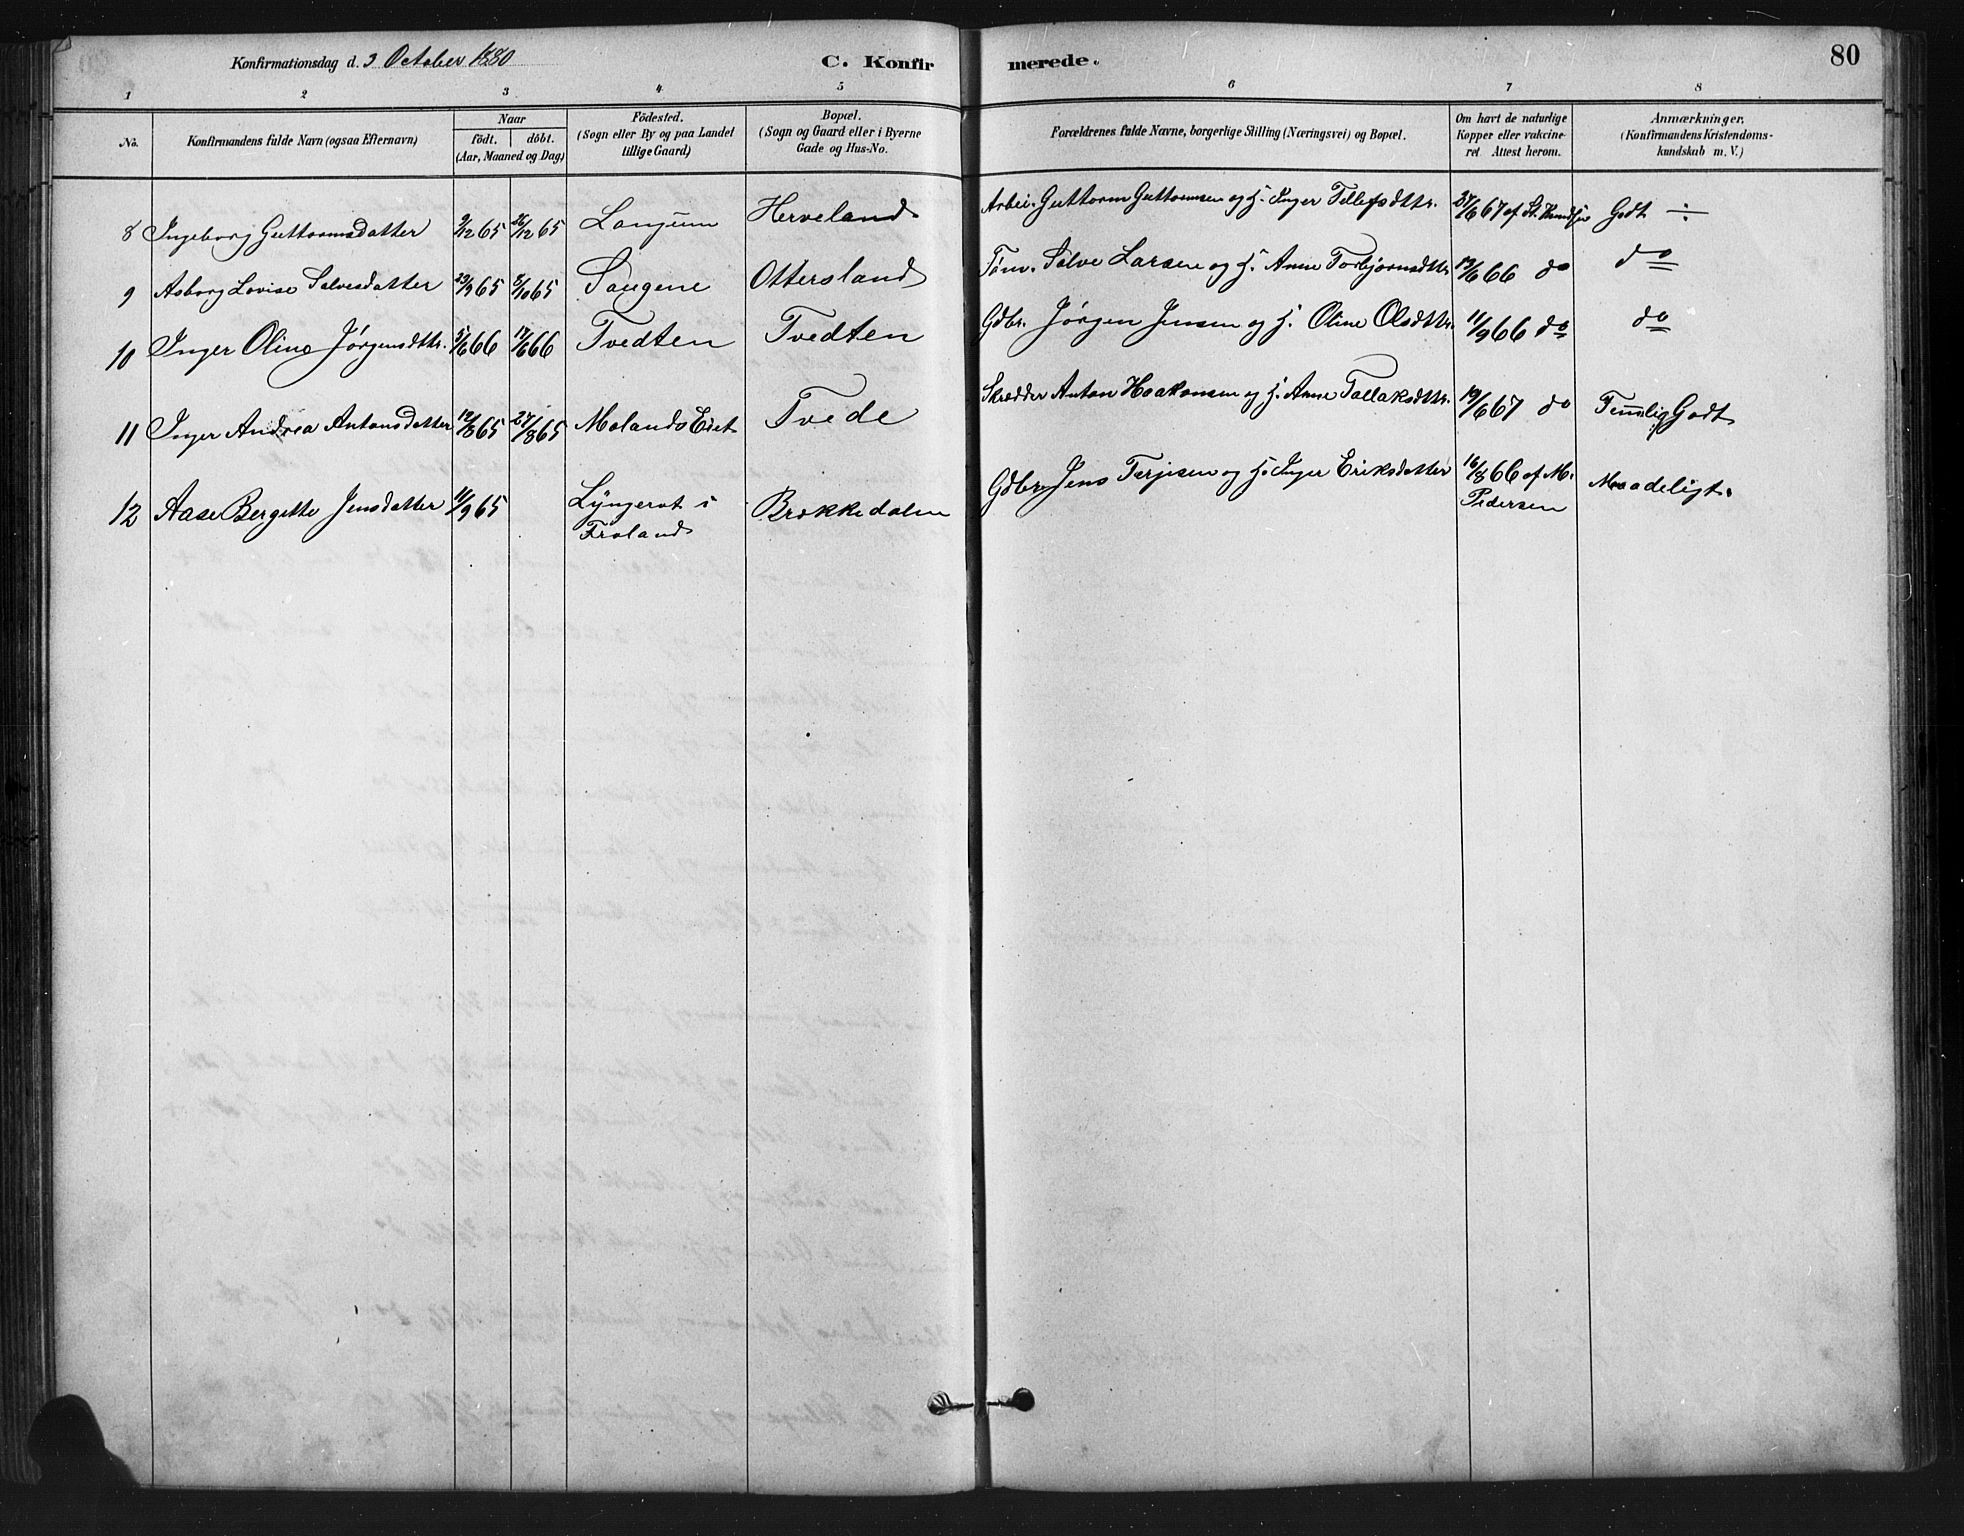 Konfirmationsdag d. 3 October 1880 C. Konfirmerede. 80
1 2 3 4 5 6 7 8
No. Konfirmandens fulde Navn (ogsaa Efternavn) Naar födt. döbt. (Aar, Maaned og Dag) Födested. (Sogn eller By og paa Landet tillige Gaard) Bopæl. (Sogn og Gaard eller i Byerne Gade og Hus-No. Forældrenes fulde Navne, borgerlige Stilling (Næringsvei) og Bopæl. Om havt de naturlige Kopper eller vakcineret. Attest herom. Anmærkninger. (Konfirmandens Kristendomskundskab m. V.)
8 Ingeborg Guttormsdatter 9/12 65 26/12 65 Langum Herveland Arbei. Guttorm Guttormsen og H. Inger Tellefsdttr. 27/6 67 af St. Godt ÷
9 Asborg Lovise Salvesdatter 23/9 65 8/10 65 Saugene Ottersland Tøm. Salve Larsen og H. Anne Torbjørnsdttr. 19/6 66 do do
10 Inger Oline Jørgensdttr. 5/6 66 17/6 66 Tvedten Tvedten Gdbr. Jørgen Jensen og H. Oline Olsdttr. 11/9 66 do do
11 Inger Andrea Antonsdatter 12/8 65 27/8 65 Molands Eiet Tvede Skrædder Anton Haakonsen og H. Anne Tallaksdttr. 19/6 67 do Temmelig Godt
12 Aase Bergitte Jensdatter 11/9 65 Lyngerot i Froland Brekkedalen Gdbr. Jens Terjesen og H. Inger Eriksdatter 16/8 66 af M. Pedersen Maadeligt.